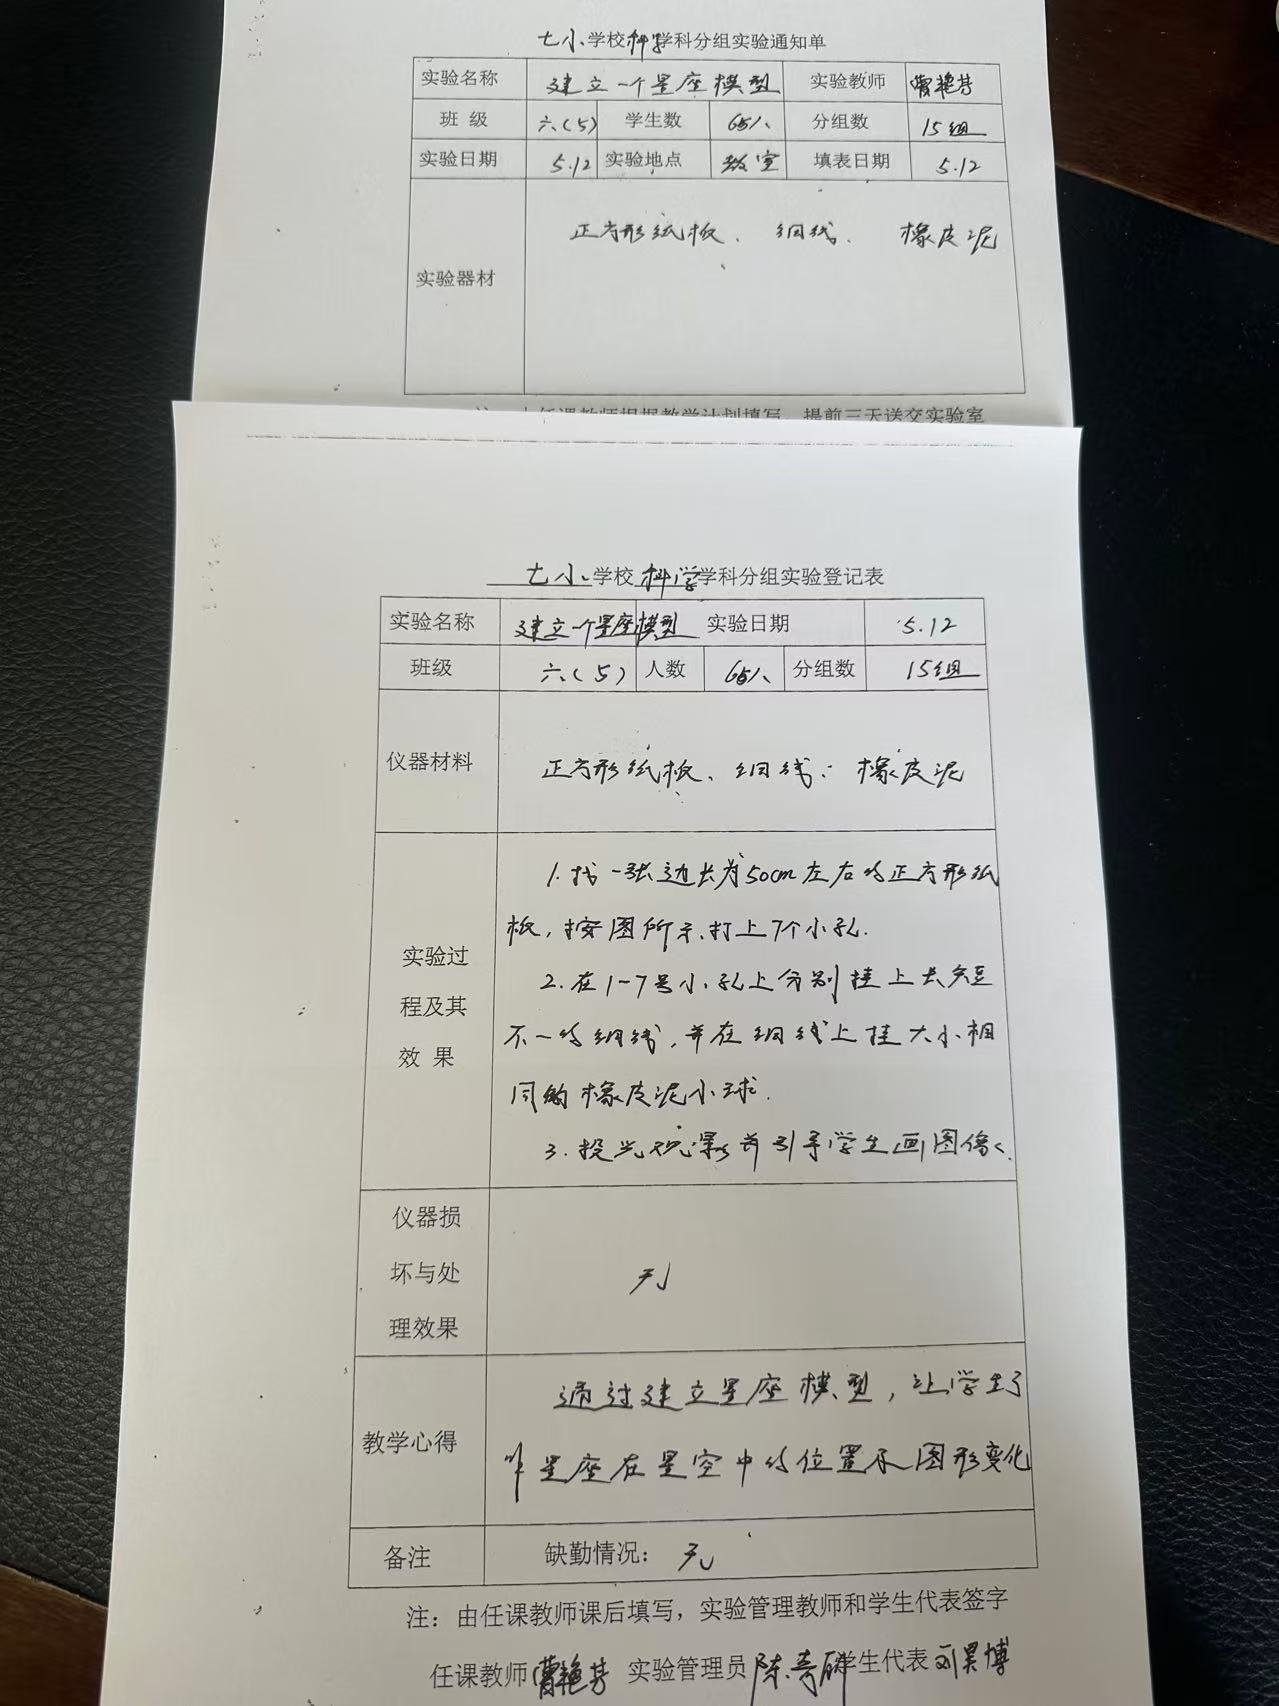 七小学校科学学科分组实验通知单
实验名称 建立一个星座模型 实验教师 曹艳芳
班 级 六(5) 学生数 65人 分组数 15组
实验日期 5.12 实验地点 教室 填表日期 5.12
正方形纸板、细线、橡皮泥
实验器材
由任课教师根据教学计划填写,提前三天送交实验室
七小学校科学学科分组实验登记表
实验名称 建立一个星座模型 实验日期 5.12
班级 六(5) 人数 65人 分组数 15组
仪器材料 正方形纸板、细线、橡皮泥
1.找一张边长为50cm左右的正方形纸
板,按图所示打上7个小孔.
实验过
2.在1-7号小孔上分别挂上长短
程及其
不一的细线,并在细线上挂大小相
效 果
同的橡皮泥小球.
3.投光观察并引导学生画图像.
仪器损
坏与处
无
理效果
通过建立星座模型,让学生了
教学心得
星座在星空中的位置及图形变化
备注 缺勤情况: 无
注:由任课教师课后填写,实验管理教师和学生代表签字
任课教师 曹艳芳 实验管理员 陈 学生代表 刘昊博